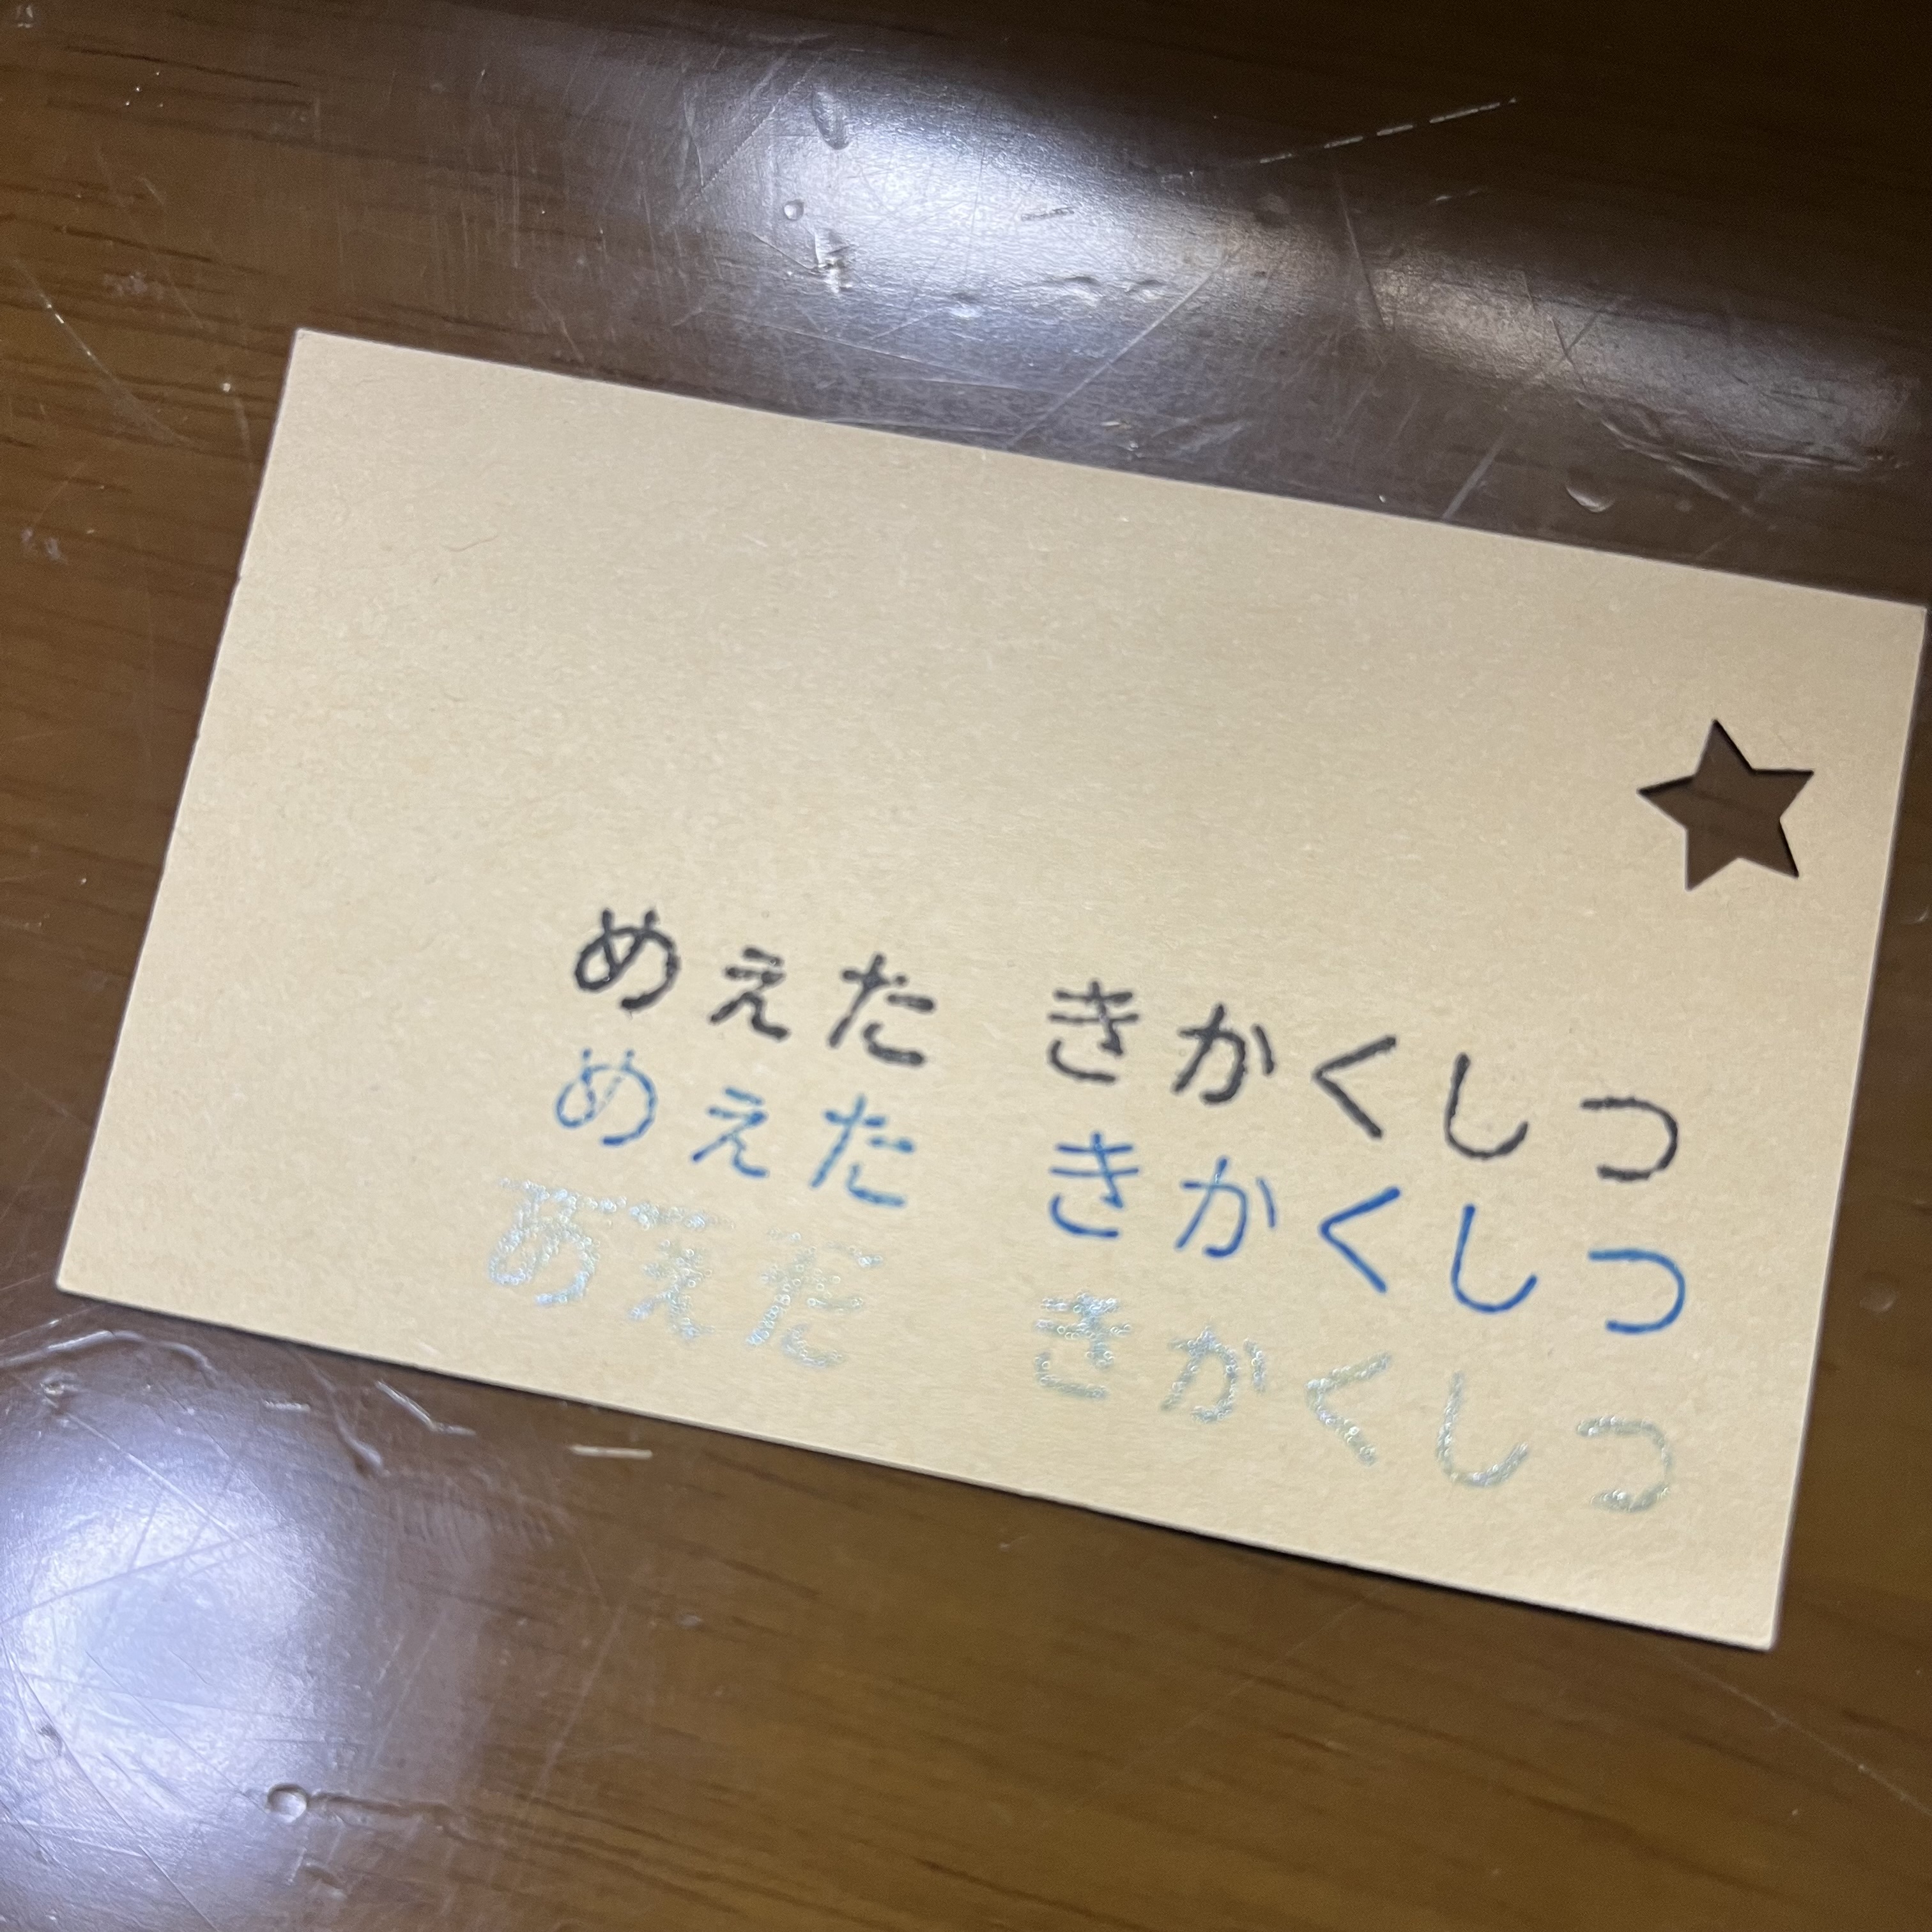 めえた きかくしつ
めえた きかくしつ
めえた きかくしつ